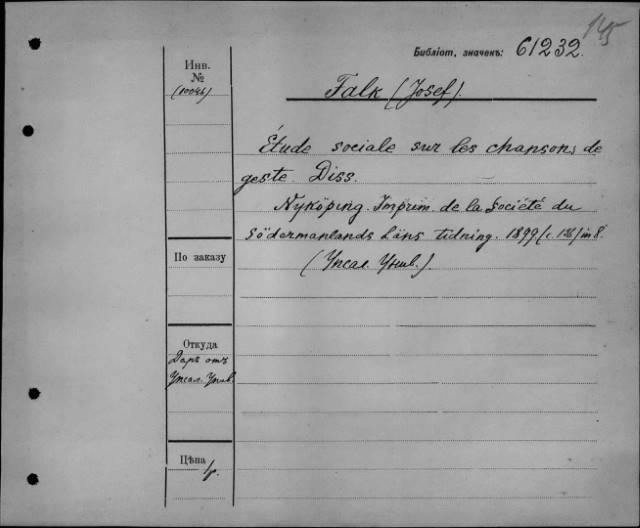 145
Библіот, значенъ: 61232.
Инв.
№
(10046)
Falk (Josef).
Étude sociale sur les chansons de
geste. Diss.
Nyköping. Imprim. de la Société du
Södermanlands Läns tidning. 1899 (c. 136) in 8°.
(Упсал. Унив.).
По заказу
Откуда
Даръ отъ
Упсал. Унив.
Цѣна